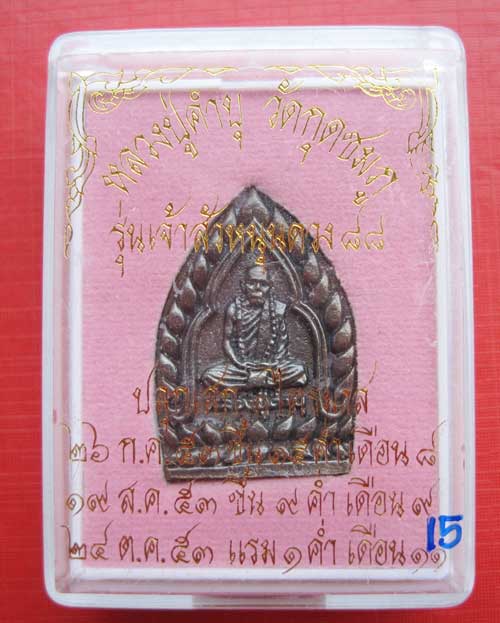 หลวงปู่คำบุ วัดกุดชมภู
รุ่นเจ้าสัวหนุนดวง ๘๘
ปลุกเสก ไตรมาส
๒๖ ก.ค. ๕๓ ขึ้น ๑๕ ค่ำ เดือน ๘
๑๙ ส.ค. ๕๓ ขึ้น ๙ ค่ำ เดือน ๙
๒๔ ต.ค. ๕๓ แรม ๑ ค่ำ เดือน ๑๑
15